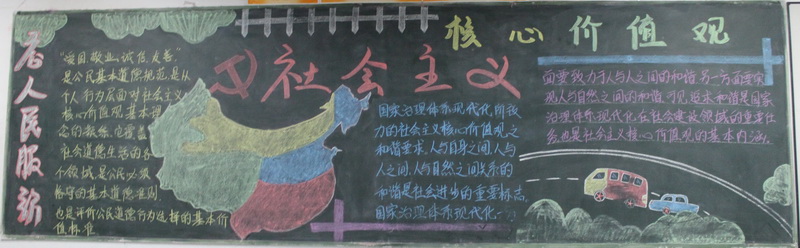 为人民服务
核心价值观
社会主义
"爱国、敬业、诚信、友善"
是公民基本道德规范,是从
个人行为层面对社会主义
核心价值观基本理
念的凝练。它覆盖
社会道德生活的各
个领域,是公民必须
恪守的基本道德准则,
也是评价公民道德行为选择的基本价
值标准
国家治理体系现代化所致
力的社会主义核心价值观之
和谐要求,人与自身之间、人与
人之间、人与自然之间关系的
和谐是社会进步的重要标志,
国家治理体系现代化一
面要致力于人与人之间的和谐,另一方面要实
现人与自然之间的和谐。可见追求和谐是国家
治理体系现代化在社会建设领域的重要任
务,也是社会主义核心价值观的基本内涵。